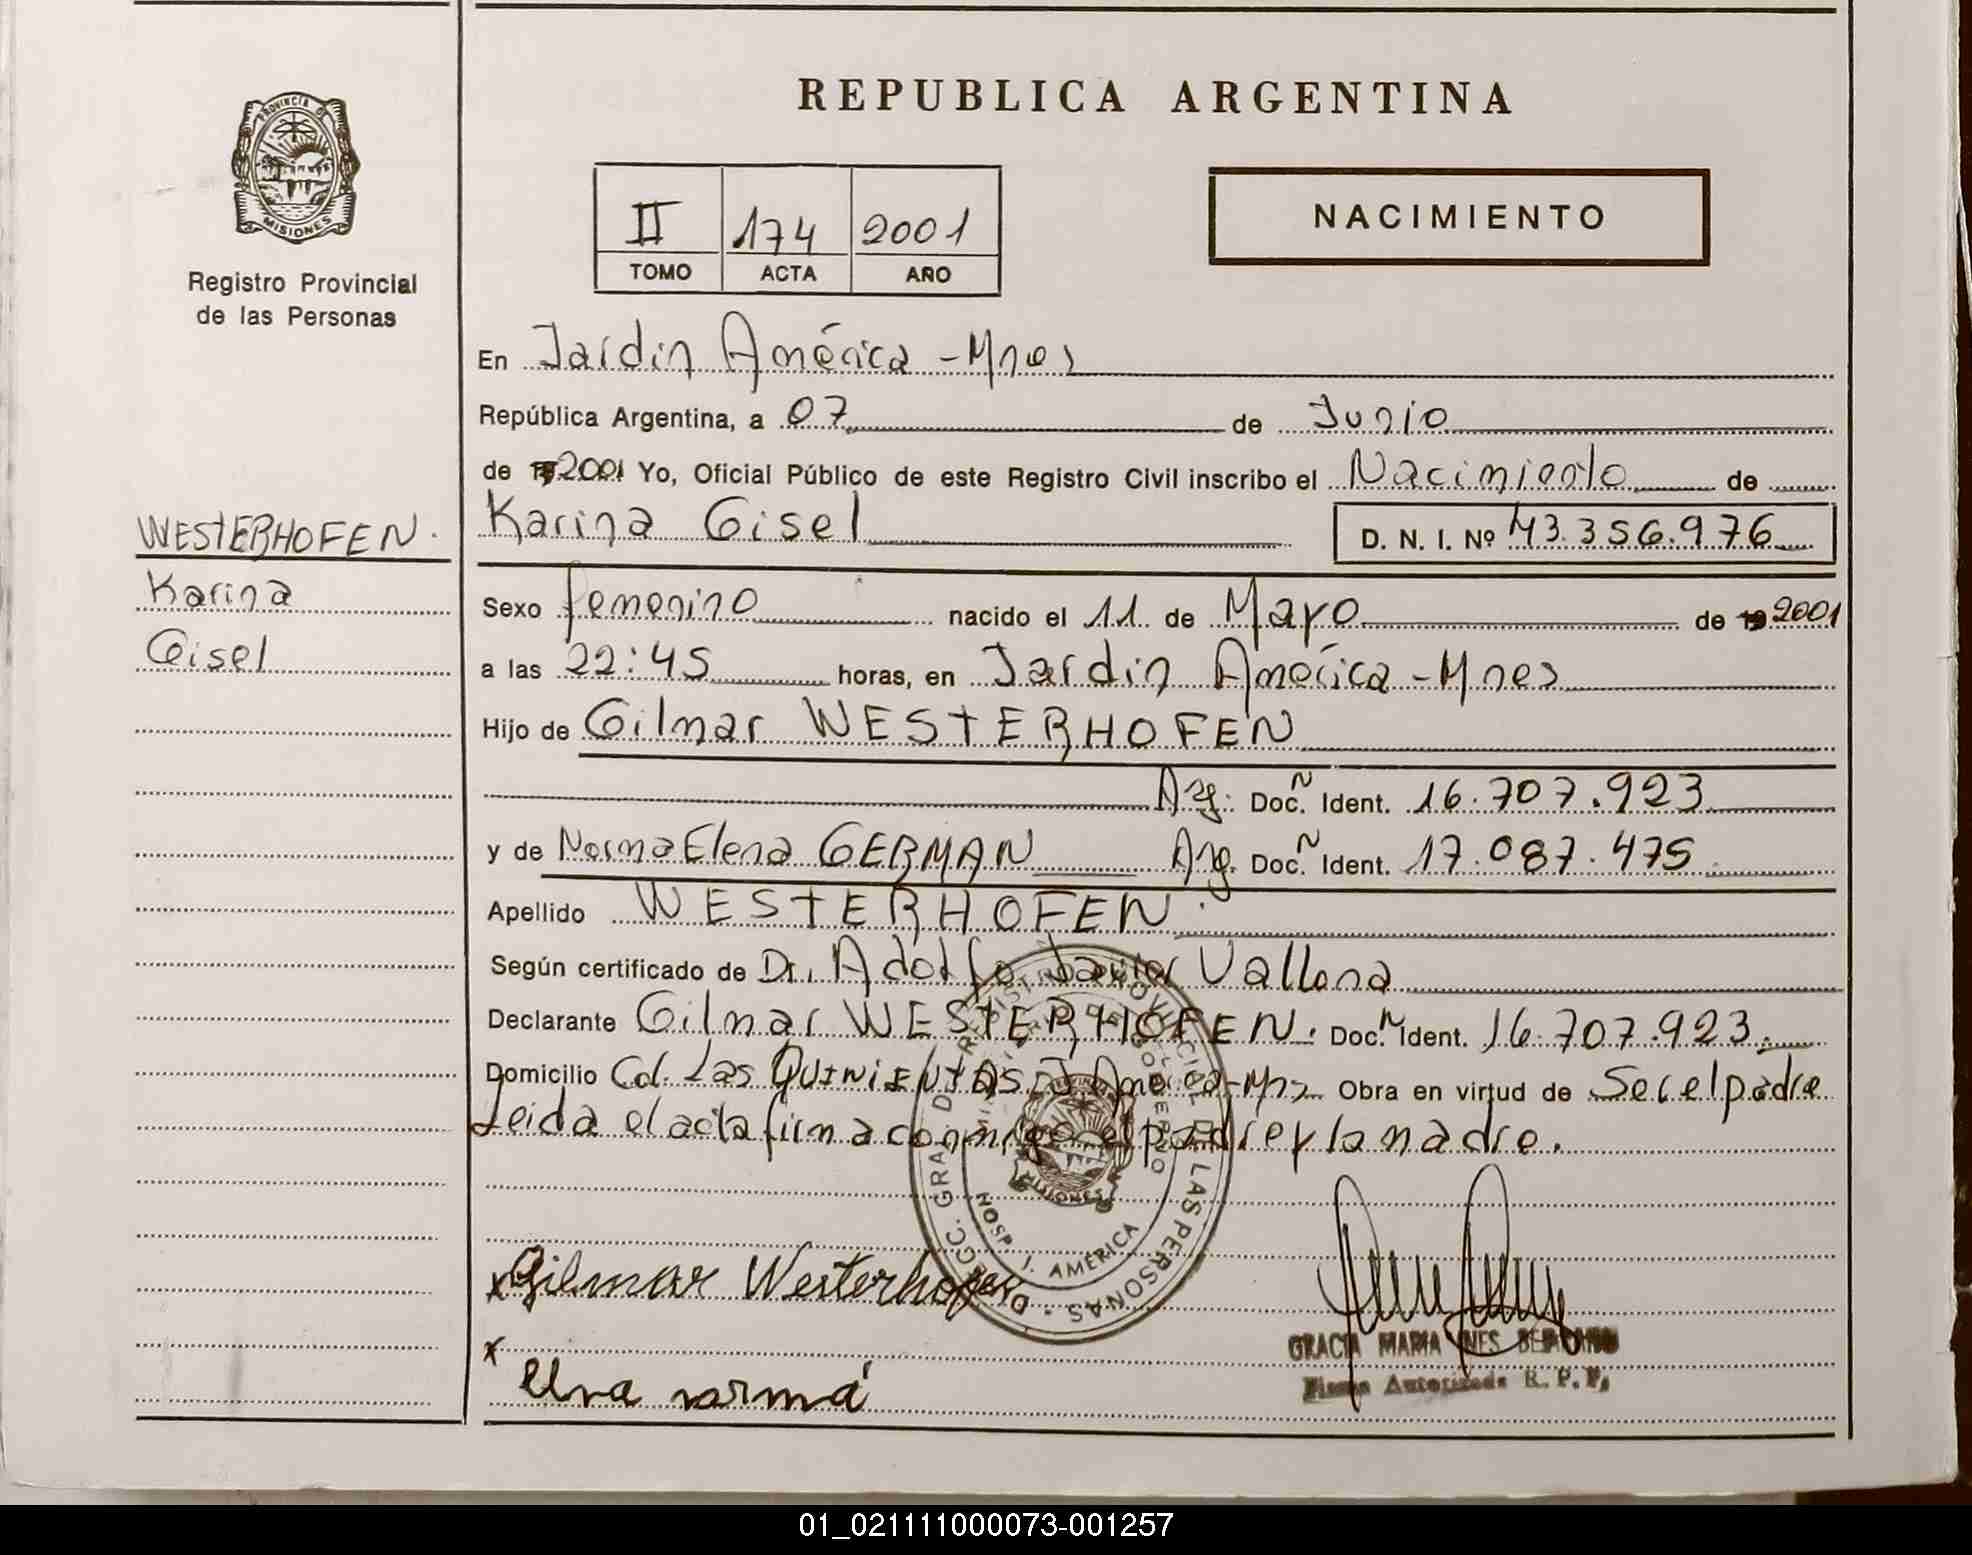 REPUBLICA ARGENTINA
PROVINCIA DE
MISIONES
Registro Provincial
de las Personas
II 174 2001
TOMO ACTA AÑO
NACIMIENTO
En Jardin América - Mnes
República Argentina, a 07 de Junio
de 2001 Yo, Oficial Público de este Registro Civil inscribo el Nacimiento de
Karina Gisel
D. N. I. Nº 43.356.976
WESTERHOFEN.
Karina
Gisel
Sexo femenino nacido el 11 de Mayo de 19 2001
a las 22:45 horas, en Jardin América - Mnes
Hijo de Gilmar WESTERHOFEN
Arg. Doc. N Ident. 16.707.923
y de Norma Elena GERMAN Arg. Doc. N Ident. 17.087.475
Apellido WESTERHOFEN.
Según certificado de Dr. Adolfo Javier Vallona
Declarante Gilmar WESTERHOFEN. Doc. N Ident. 16.707.923.
Domicilio Cd. Las QUINIENTAS J. América - Mnes Obra en virtud de Ser el padre
Leida el acta firma conmigo el padre y la madre.
REGISTRO PROVINCIAL DE LAS PERSONAS
HOSP. J. AMÉRICA
MISIONES
x Gilmar Westerhofen
x Elna norma
GRACIA MARIA INES
Firma Autorizada R. P. P.
01_021111000073-001257